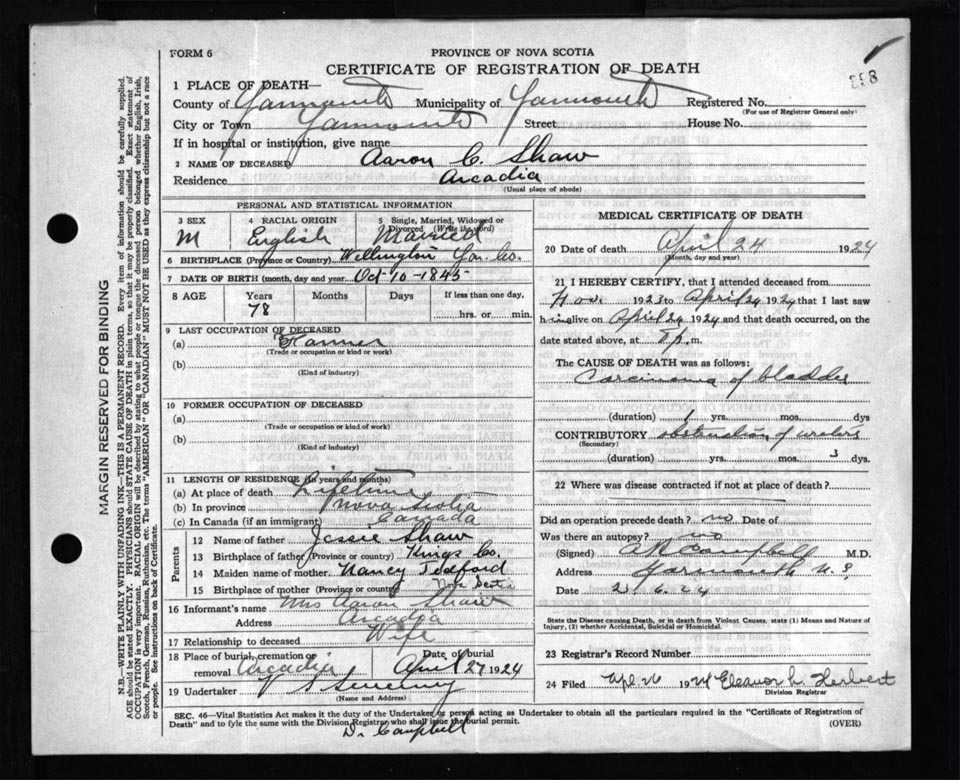 FORM 6
PROVINCE OF NOVA SCOTIA
CERTIFICATE OF REGISTRATION OF DEATH
1 PLACE OF DEATH—
County of Yarmouth Municipality of Yarmouth Registered No.
(For use of Registrar General only)
City or Town Yarmouth Street House No.
If in hospital or institution, give name
2 NAME OF DECEASED Aaron C. Shaw
Residence Arcadia
(Usual place of abode)
PERSONAL AND STATISTICAL INFORMATION
3 SEX 4 RACIAL ORIGIN 5 Single, Married, Widowed or Divorced (Write the word)
M English Married
6 BIRTHPLACE (Province or Country) Wellington Yar. Co.
7 DATE OF BIRTH (month, day and year) Oct 10-1845
8 AGE Years Months Days If less than one day,
78 hrs. or min.
9 LAST OCCUPATION OF DECEASED
(a) Farmer
(Trade or occupation or kind or work)
(b)
(Kind of industry)
10 FORMER OCCUPATION OF DECEASED
(a)
(Trade or occupation or kind of work)
(b)
(Kind of industry)
11 LENGTH OF RESIDENCE (In years and months)
(a) At place of death Lifetime
(b) In province Nova Scotia
(c) In Canada (if an immigrant) Canada
Parents
12 Name of father Jessie Shaw
13 Birthplace of father (Province or country) Kings Co.
14 Maiden name of mother Nancy Tedford
15 Birthplace of mother (Province or country) Nova Scotia
16 Informant's name Mrs Aaron Shaw
Address Arcadia
17 Relationship to deceased Wife
18 Place of burial, cremation or removal Arcadia Date of burial April 27 1924
19 Undertaker V S Sweeney
(Name and Address)
MEDICAL CERTIFICATE OF DEATH
20 Date of death April 24 1924
(Month, day and year)
21 I HEREBY CERTIFY, that I attended deceased from
Nov. 1923 to April 24 1924 that I last saw
him alive on April 24 1924 and that death occurred, on the
date stated above, at p.m.
The CAUSE OF DEATH was as follows:
Carcinoma of bladder
(duration) 1 yrs. mos. dys
CONTRIBUTORY obstruction of ureters
(Secondary)
(duration) yrs. mos. 3 dys.
22 Where was disease contracted if not at place of death?
Did an operation precede death? no Date of
Was there an autopsy? no
(Signed) Campbell M.D.
Address Yarmouth N.S.
Date 2 6. 24
State the Disease causing Death, or in death from Violent Causes, state (1) Means and Nature of Injury, (2) whether Accidental, Suicidal or Homicidal.
23 Registrar's Record Number
24 Filed Apl. 26 1924 Eleanor L. Herbert
Division Registrar
SEC. 46—Vital Statistics Act makes it the duty of the Undertaker or person acting as Undertaker to obtain all the particulars required in the "Certificate of Registration of
Death" and to fyle the same with the Division Registrar who shall issue the burial permit. (OVER)
Dr Campbell
MARGIN RESERVED FOR BINDING
N.B.—WRITE PLAINLY WITH UNFADING INK—THIS IS A PERMANENT RECORD. Every item of information should be carefully supplied.
AGE should be stated EXACTLY. PHYSICIANS should STATE CAUSE OF DEATH in plain terms, so that it may be properly classified. Exact statement of
OCCUPATION is very important. RACIAL ORIGIN will be described by stating to what people or tongue the deceased person belonged whether English, Irish,
Scotch, French, German, Russian, Ruthenian, etc. The terms "AMERICAN" OR "CANADIAN" MUST NOT BE USED as they express citizenship but not a race
or people. See instructions on back of Certificate.